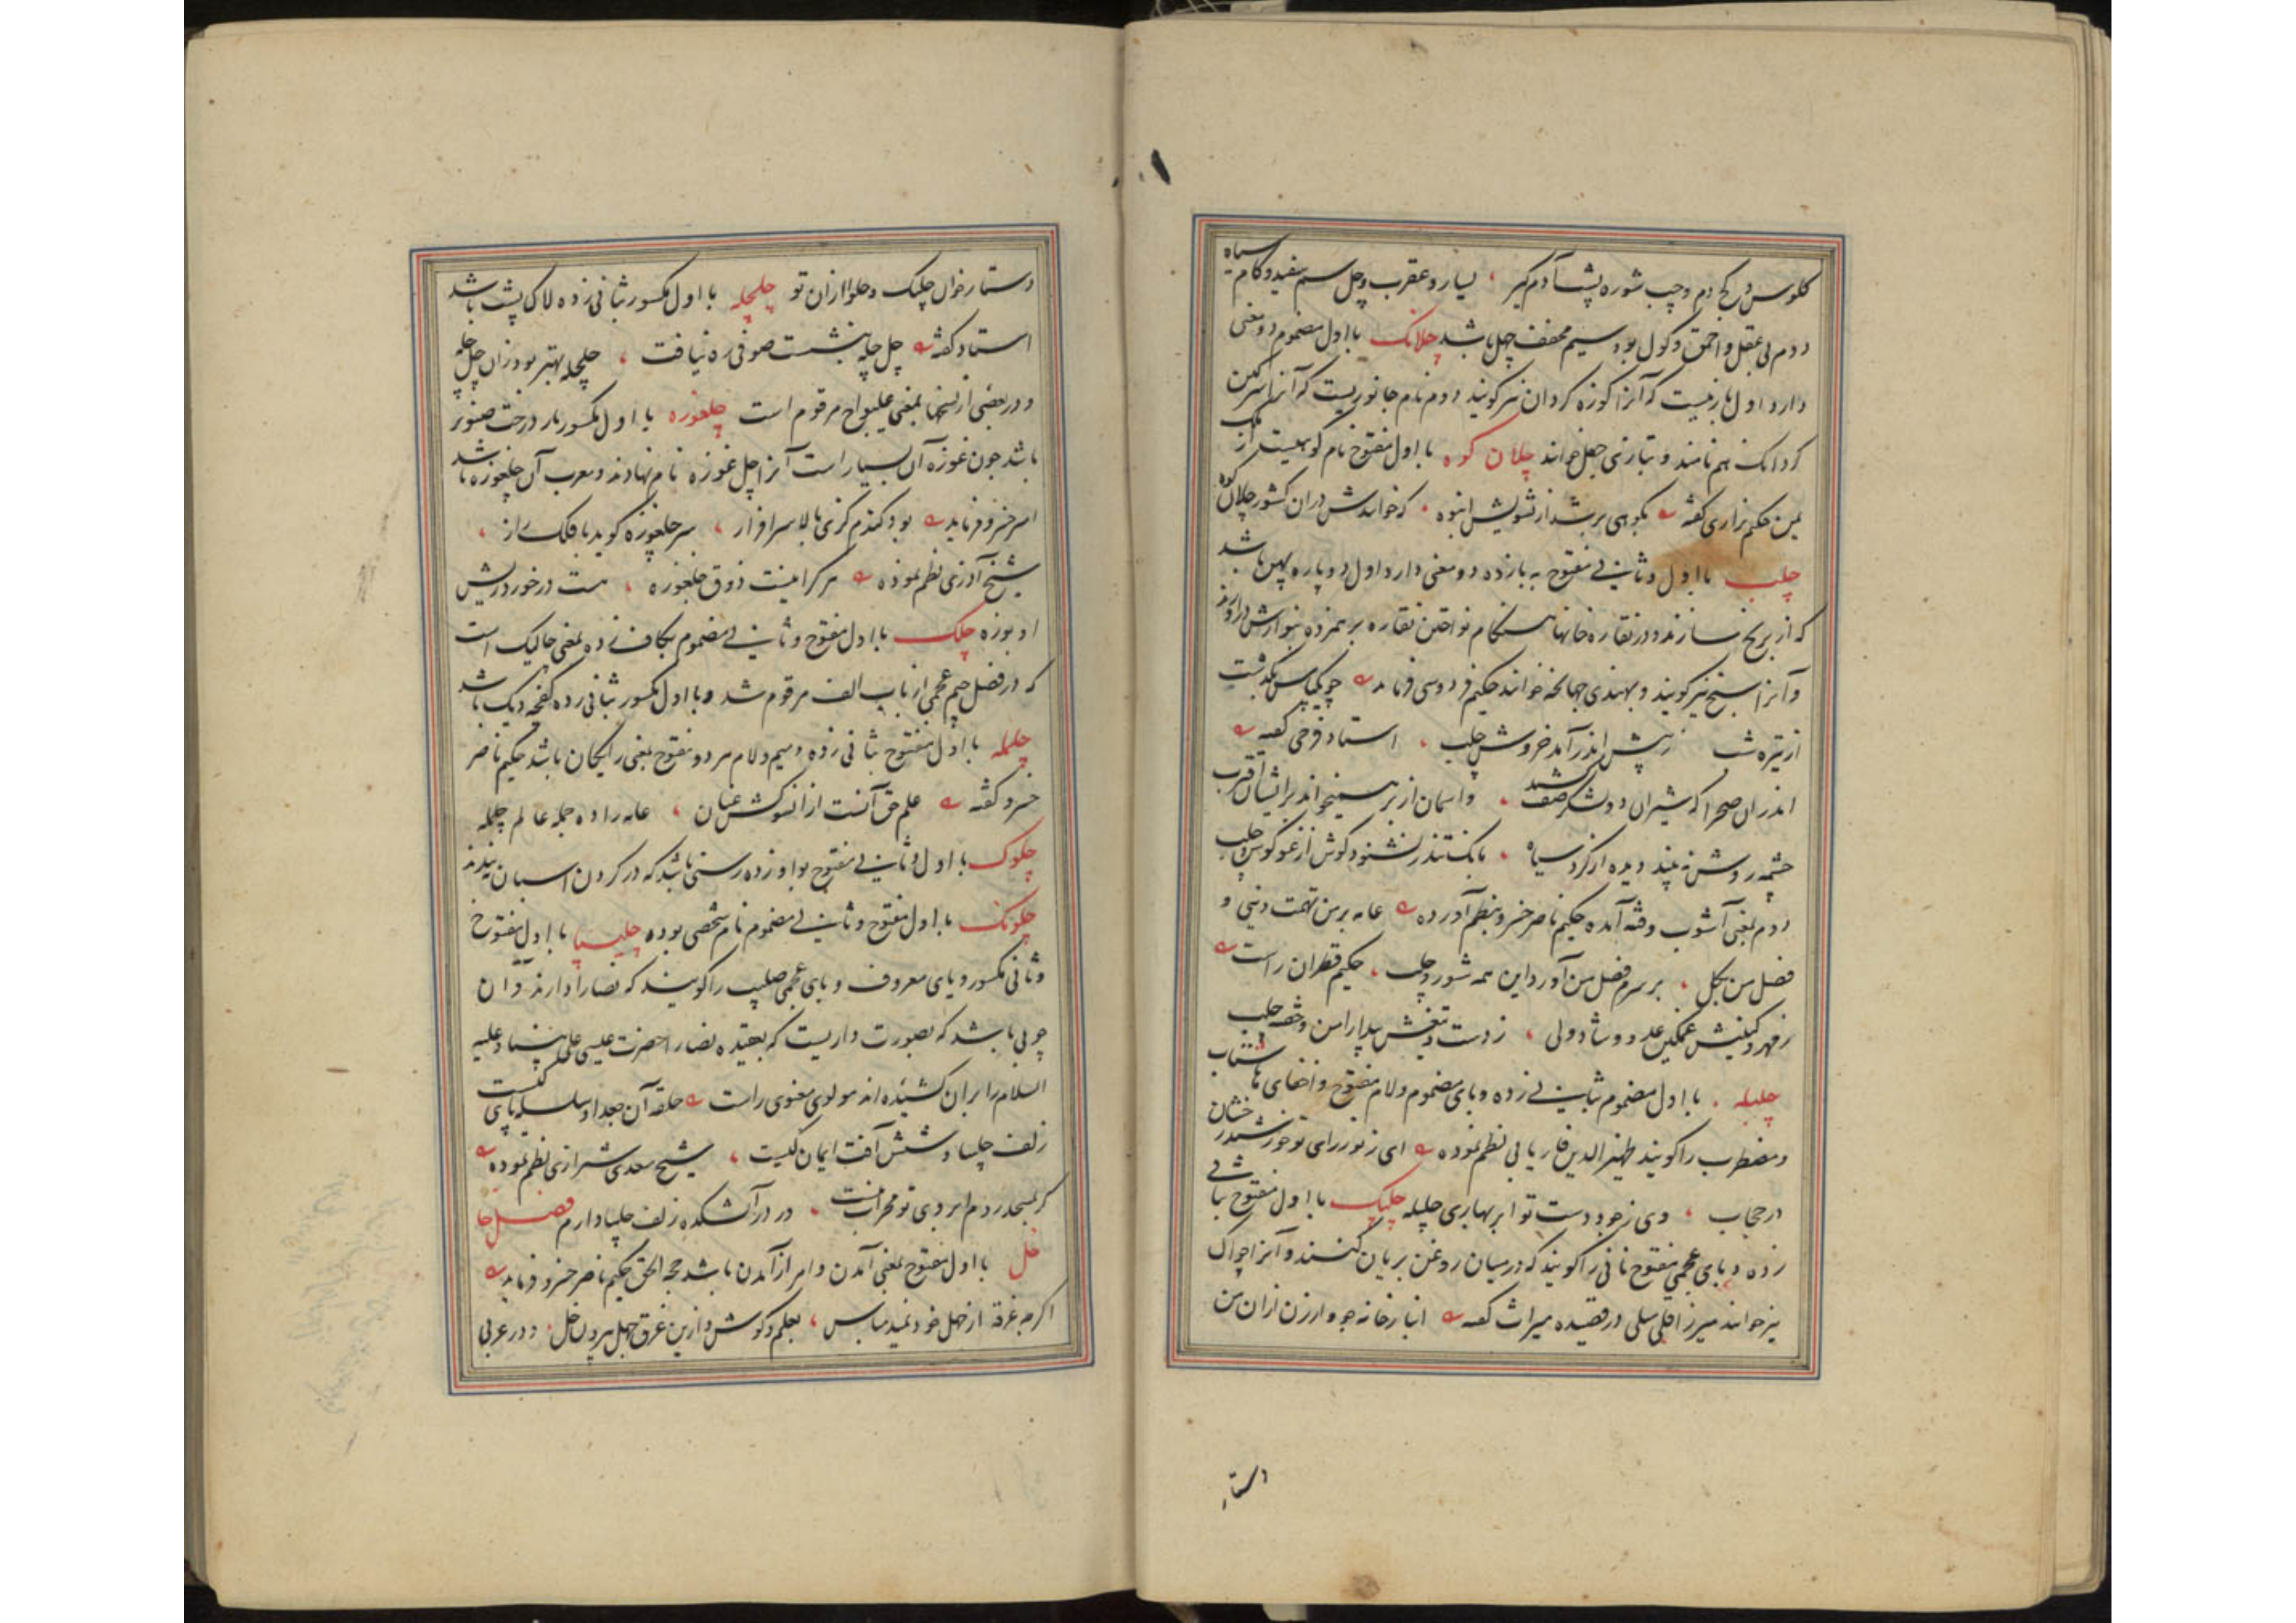 کلوس و کج دم و چپ شوره پشت آدم گیر ، یسار و عقرب و چل سم سفید و کام سیاه
دوم بی عقل و احمق و کول بود سیم مخفف چهل باشد چلانک با اول مضموم دو معنی
دارد اول بازییست که آنرا کوزه کردان نیز کویند دوم نام جانوریست که آنرا سرکین
کردانک هم نامند و بتازی جعل خوانند چلان کوه با اول مفتوح نام کوهیست از ملک
یمن حکیم نزاری کفته بکوهی بر شد از تشویش انبوه ، که خوانندش دران کشور چلان کوه
چلب با اول و ثانی مفتوح به با زده دو معنی دارد اول دو پاره پهن باشد
که از برنج سازند و در نقاره خانها هنکام نواختن نقاره بر همزده بنوازش در آورند
و آنرا سنج نیز کویند و بهندی جهانجه خوانند حکیم فردوسی فرماید چو یکپاس بگذشت
از تیره شب ز پیش اندر آمد خروش چلب ، استاد فرخی کفته
اندران صحرا که شیران دو لشکر صف کشند ، و اسمان از بر همیخواند بر ایشان اقترب
چشمه روشن نه بیند دیده از کرد سیاه ، بانک تندر نشنود کوش از غو کوس و چلب
دوم بمعنی آشوب و فتنه آمده حکیم ناصر خسرو بنظم آورده عامه بر من تهمت دینی و
فضل من بکل ، بر سرم فضل من آورد این همه شور و چلب ، حکیم قطران راست
ز مهر و کینش غمکین عدو و شاد ولی ، ز دست و تیغش بیدار امن و خفته چلب
چلبله . با اول مضموم بثانی زده و بای مضموم و لام مفتوح و اخفای ها شتاب
و مضطرب را کویند ظهیر الدین فاریابی نظم نموده ای ز نور رای تو خورشید رخشان
در حجاب ، وی ز جود دست تو ابر بهاری چلبله چلپک با اول مفتوح بثانی
زده و بای عجمی مفتوح نانی را کویند که در میان روغن بریان کنند و آنرا چواک
نیز خوانند میرزا قلی میلی در قصیده میراث کفته انبار خانه جو و ارزن ازان من
دستار
دستار خوان چلپک و حلوا ازان تو چلچله با اول مکسور بثانی زده لاک پشت باشد
استاد کفته چل چله بنشست صوفی ره نیافت ، چلچله بهتر بود زان چل چله
و در بعضی از نسخها بمعنی غلیواج مرقوم است چلغوزه با اول مکسور بار درخت صنوبر
باشد چون غوزه آن بسیار است آنرا چل غوزه نام نهادند و معرب آن جلغوزه باشد
امیر خسرو فرماید بود کندم کزی بالا سرافراز ، سر چلغوزه کوید با فلک راز ،
شیخ آذری نظم نموده هر کرا نیست ذوق چلغوزه ، هست در خورد ریش
او بوزه چلک با اول مفتوح و ثانی مضموم بکاف زده بمعنی چالیک است
که در فصل جیم عجمی از باب الف مرقوم شد و با اول مکسور بثانی زده کفچه دیک باشد
چلمله با اول مفتوح بثانی زده و میم و لام هر دو مفتوح بمعنی رایکان باشد حکیم ناصر
خسرو کفته علم حق آنست ازانسو کش عنان ، عامه را ده جمله عالم چلمله
چلوک با اول و ثانی مفتوح بواو زده رسنی باشد که در کردن اسبان بندند
چلونک با اول مفتوح و ثانی مضموم نام شخصی بوده چلیپا با اول مفتوح
و ثانی مکسور و یای معروف و بای عجمی صلیب را کویند که نصارا دارند و آن
چوبی باشد که بصورت داریست که بعقیده نصارا حضرت عیسی علی نبینا و علیه
السلام را بران کشیده اند مولوی معنوی راست حلقه آن جعد او سلسله پای کیست
زلف چلیپا وشش آفت ایمان کیست ، شیخ سعدی شیرازی نظم نموده
کر بمسجد روم ابروی تو محراب منست ، ور در آتشکده زلف چلیپا دارم فصل خا
خل با اول مفتوح بمعنی آمدن و امر از آمدن باشد حجه الحق حکیم ناصر خسرو فرماید
اکرچه غرقه از جهل خود نمید مباش ، بعلم کوش و ازین غرق جهل بیرون خل . و در عربی